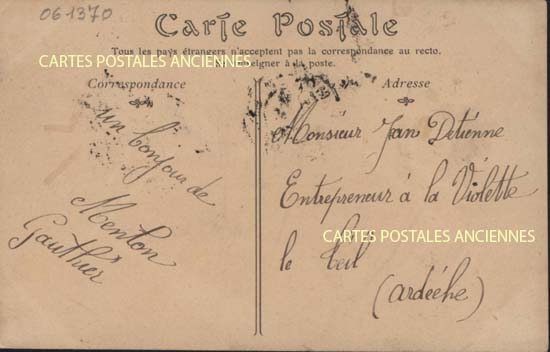 06-1370
Carte Postale
Tous les pays étrangers n'acceptent pas la correspondance au recto.
CARTES POSTALES ANCIENNES
à la poste.
Correspondance
Adresse
un bonjour de
Menton
Gauthier
Monsieur Jean Detienne
Entrepreneur à la Violette
CARTES POSTALES ANCIENNES
le Teil
(Ardèche)